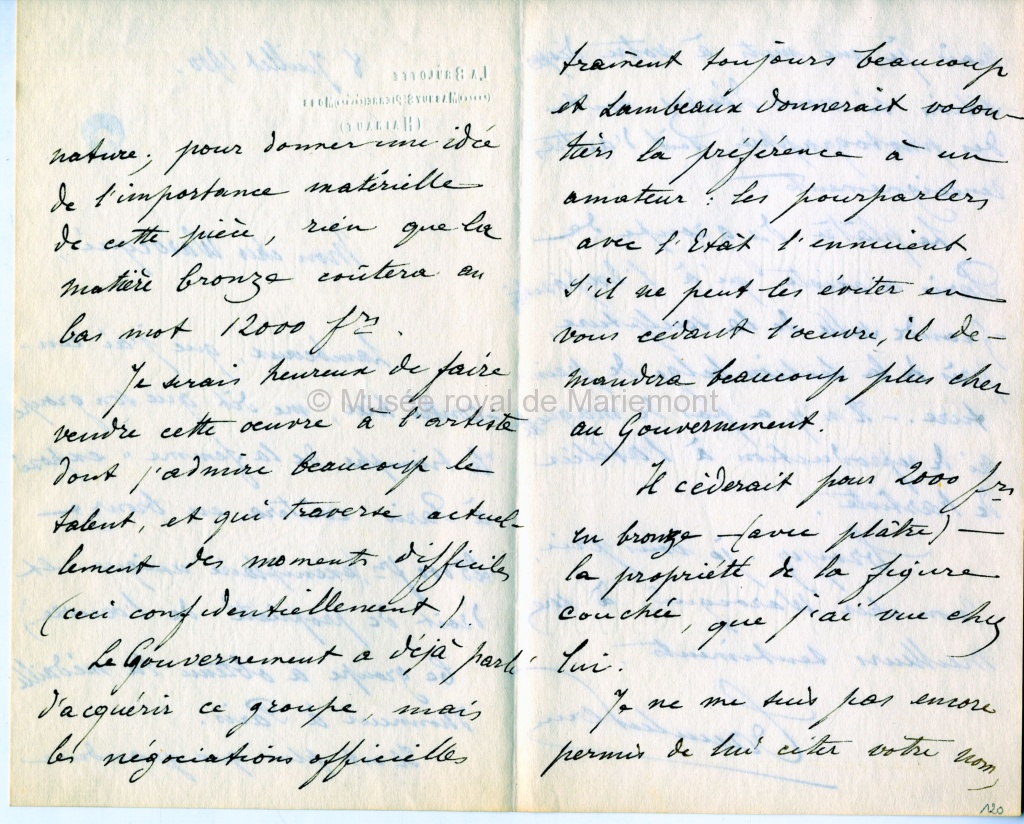 nature; pour donner une idée
de l'importance matérielle
de cette pièce, rien que la
matière bronze coûtera au
bas mot 12000 frs.
Je serais heureux de faire
vendre cette œuvre à l'artiste
dont j'admire beaucoup le
talent, et qui traverse actuel-
lement des moments difficiles
(ceci confidentiellement).
Le Gouvernement a déjà parlé
d'acquérir ce groupe, mais
les négociations officielles
traînent toujours beaucoup
et Lambeaux donnerait volon-
tiers la préférence à un
amateur: les pourparlers
avec l'Etat l'ennuient.
S'il ne peut les éviter en
vous cédant l'œuvre, il de-
mandera beaucoup plus cher
au Gouvernement.
Il cèderait pour 2000 frs
en bronze – (avec plâtre) –
la propriété de la figure
couchée, que j'ai vue chez
lui.
Je ne me suis pas encore
permis de lui citer votre nom,
120
© Musée royal de Mariemont